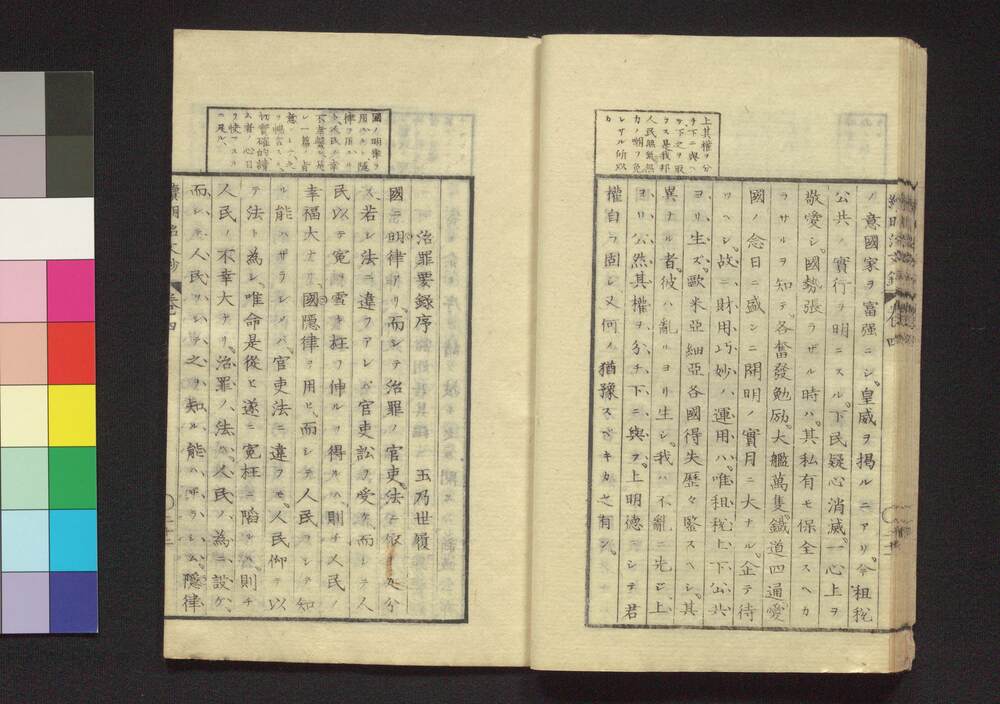 上其權ヲ分
チ下ニ與ヘ
ラス是我邦
カノ嘲ヲ免
レザル所以
カ
ノ意國家ヲ富强ニシ。皇威ヲ揭ルニアリ。今租稅
公共ノ實行ヲ明ニスル。下民疑心消滅。一心上ヲ
敬愛シ。國勢張ラザル時ハ。其私有モ保全スヘカ
ラサルヲ知テ。各奮發勉励。大艦萬隻。鐵道四通。愛
國ノ念日ニ盛シニ開明ノ實月ニ大ナル。企テ待
ツヘシ。故ニ財用巧妙ノ運用ハ。唯租稅上下公共
ヨリ生ズ。歐米亞細亞各國得失歷々鑒スヘシ。其
異ナル者。彼ハ亂ルヨリ生シ。我ハ不亂ニ先ジ上
ヨリ公然其權ヲ分チ下ニ與フ。上明德ニシテ君
權自ラ固シ又何ノ猶豫スベキカ之有ン。
國ノ明律ヲ
用ルト隱
律ヲ用ルハ
切實確的讀
ム者ノ心目
治罪要錄序　玉乃世履
國ニ明律アリ。而シテ治罪ノ官吏。法ニ依ラ处分
ス若シ法ニ違フアレバ官吏訟ヲ受ケ。而シテ人
民以テ寃ヲ雪キ枉ヲ伸ルヲ得ルハ則チ人民ノ
幸福大ナリ。國隱律ヲ用ヒ。而シテ人民ヲシテ知
ル能ハザラシメバ。官吏法ニ違フモ。人民仰テ以
テ法ト為シ。唯命是從ヒ遂ニ寃枉ニ陷ルハ。則チ
人民ノ不幸大ナリ。治罪ノ法ハ。人民ノ為ニ設ケ。
而シテ人民ヲシテ之ヲ知ル能ハザラシム。隱律